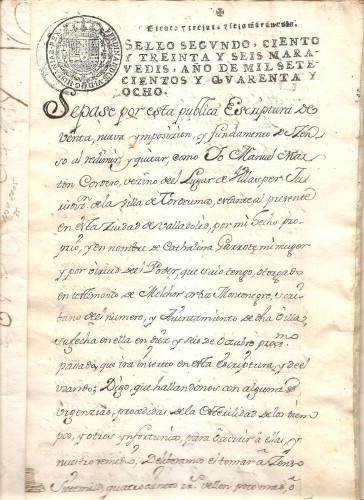 Ciento y treinta y seis maravedis.
SELLO SEGVNDO, CIENTO
Y TREINTA Y SEIS MARA-
VEDIS, AÑO DE MIL SETE-
CIENTOS Y QVARENTA Y
OCHO.
Sepase por esta publica Escriptura de
Venta, nueva ymposizion, y fundamento de Zen-
so al redimir y quitar, como Yo Manuel Mar-
tin Cordero, vezino del Lugar de Villas, por
de la villa de estante al presente
en esta Ciudad de Valladolid, por mi hecho pro-
prio, y en nombre de Cathalina Garrote mi muger
y por virtud del Poder, que suio tengo, otorgado
en testimonio de Melchor Montenegro, escri-
bano del numero, y Ayuntamiento de dha Villa
su fecha en ella en diez y seis de Octubre proximo
pasado, que ira inserto en esta Escriptura, y de el
usando; Digo, que hallandonos con algunas
urgenzias, prozedidas de la esterilidad de los tiem-
pos, y otros ynfortunios, para ocurrir a ellas, y
nuestro remedio, Deliberamos el tomar a Zenso
Siete mil quatrocientos Rs. Vellon